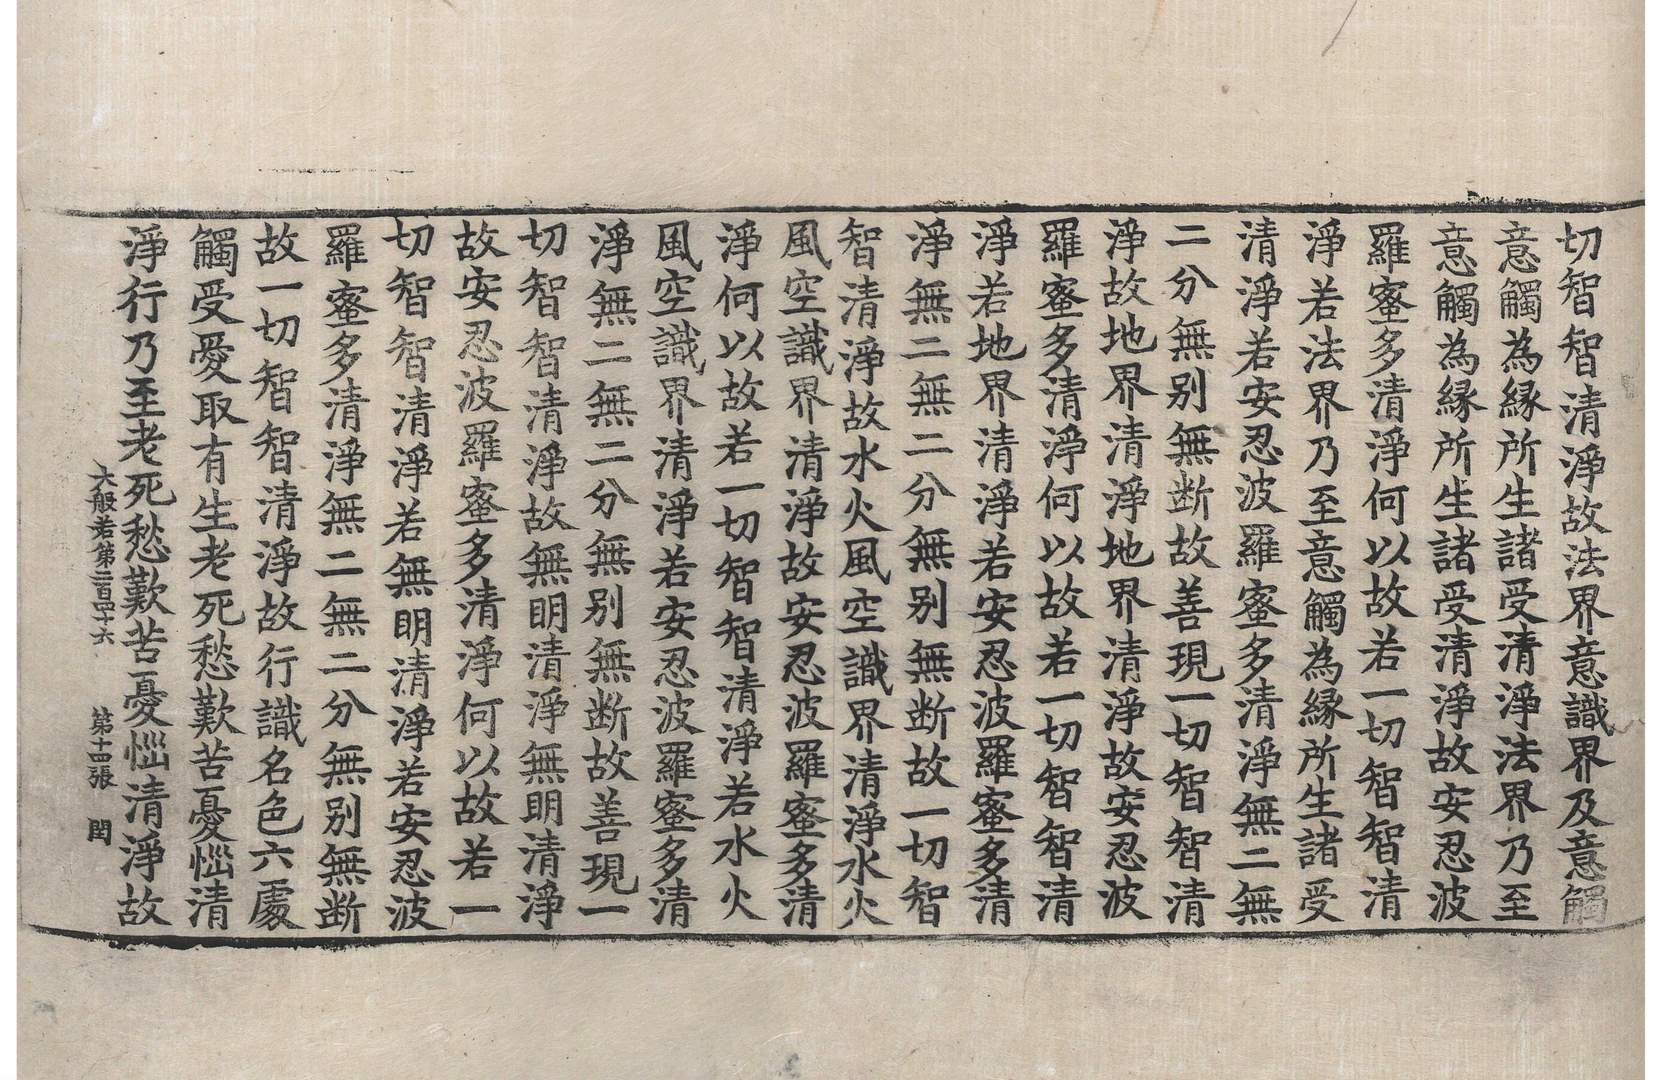 切智智清淨故法界意識界及意觸
意觸為緣所生諸受清淨法界乃至
意觸為緣所生諸受清淨故安忍波
羅蜜多清淨何以故若一切智智清
淨若法界乃至意觸為緣所生諸受
清淨若安忍波羅蜜多清淨無二無
二分無別無断故善現一切智智清
淨故地界清淨地界清淨故安忍波
羅蜜多清淨何以故若一切智智清
淨若地界清淨若安忍波羅蜜多清
淨無二無二分無別無断故一切智
智清淨故水火風空識界清淨水火
風空識界清淨故安忍波羅蜜多清
淨何以故若一切智智清淨若水火
風空識界清淨若安忍波羅蜜多清
淨無二無二分無別無断故善現一
切智智清淨故無明清淨無明清淨
故安忍波羅蜜多清淨何以故若一
切智智清淨若無明清淨若安忍波
羅蜜多清淨無二無二分無別無断
故一切智智清淨故行識名色六處
觸受愛取有生老死愁歎苦憂惱清
淨行乃至老死愁歎苦憂惱清淨故
六般若第二百四十六 第十四張 閏